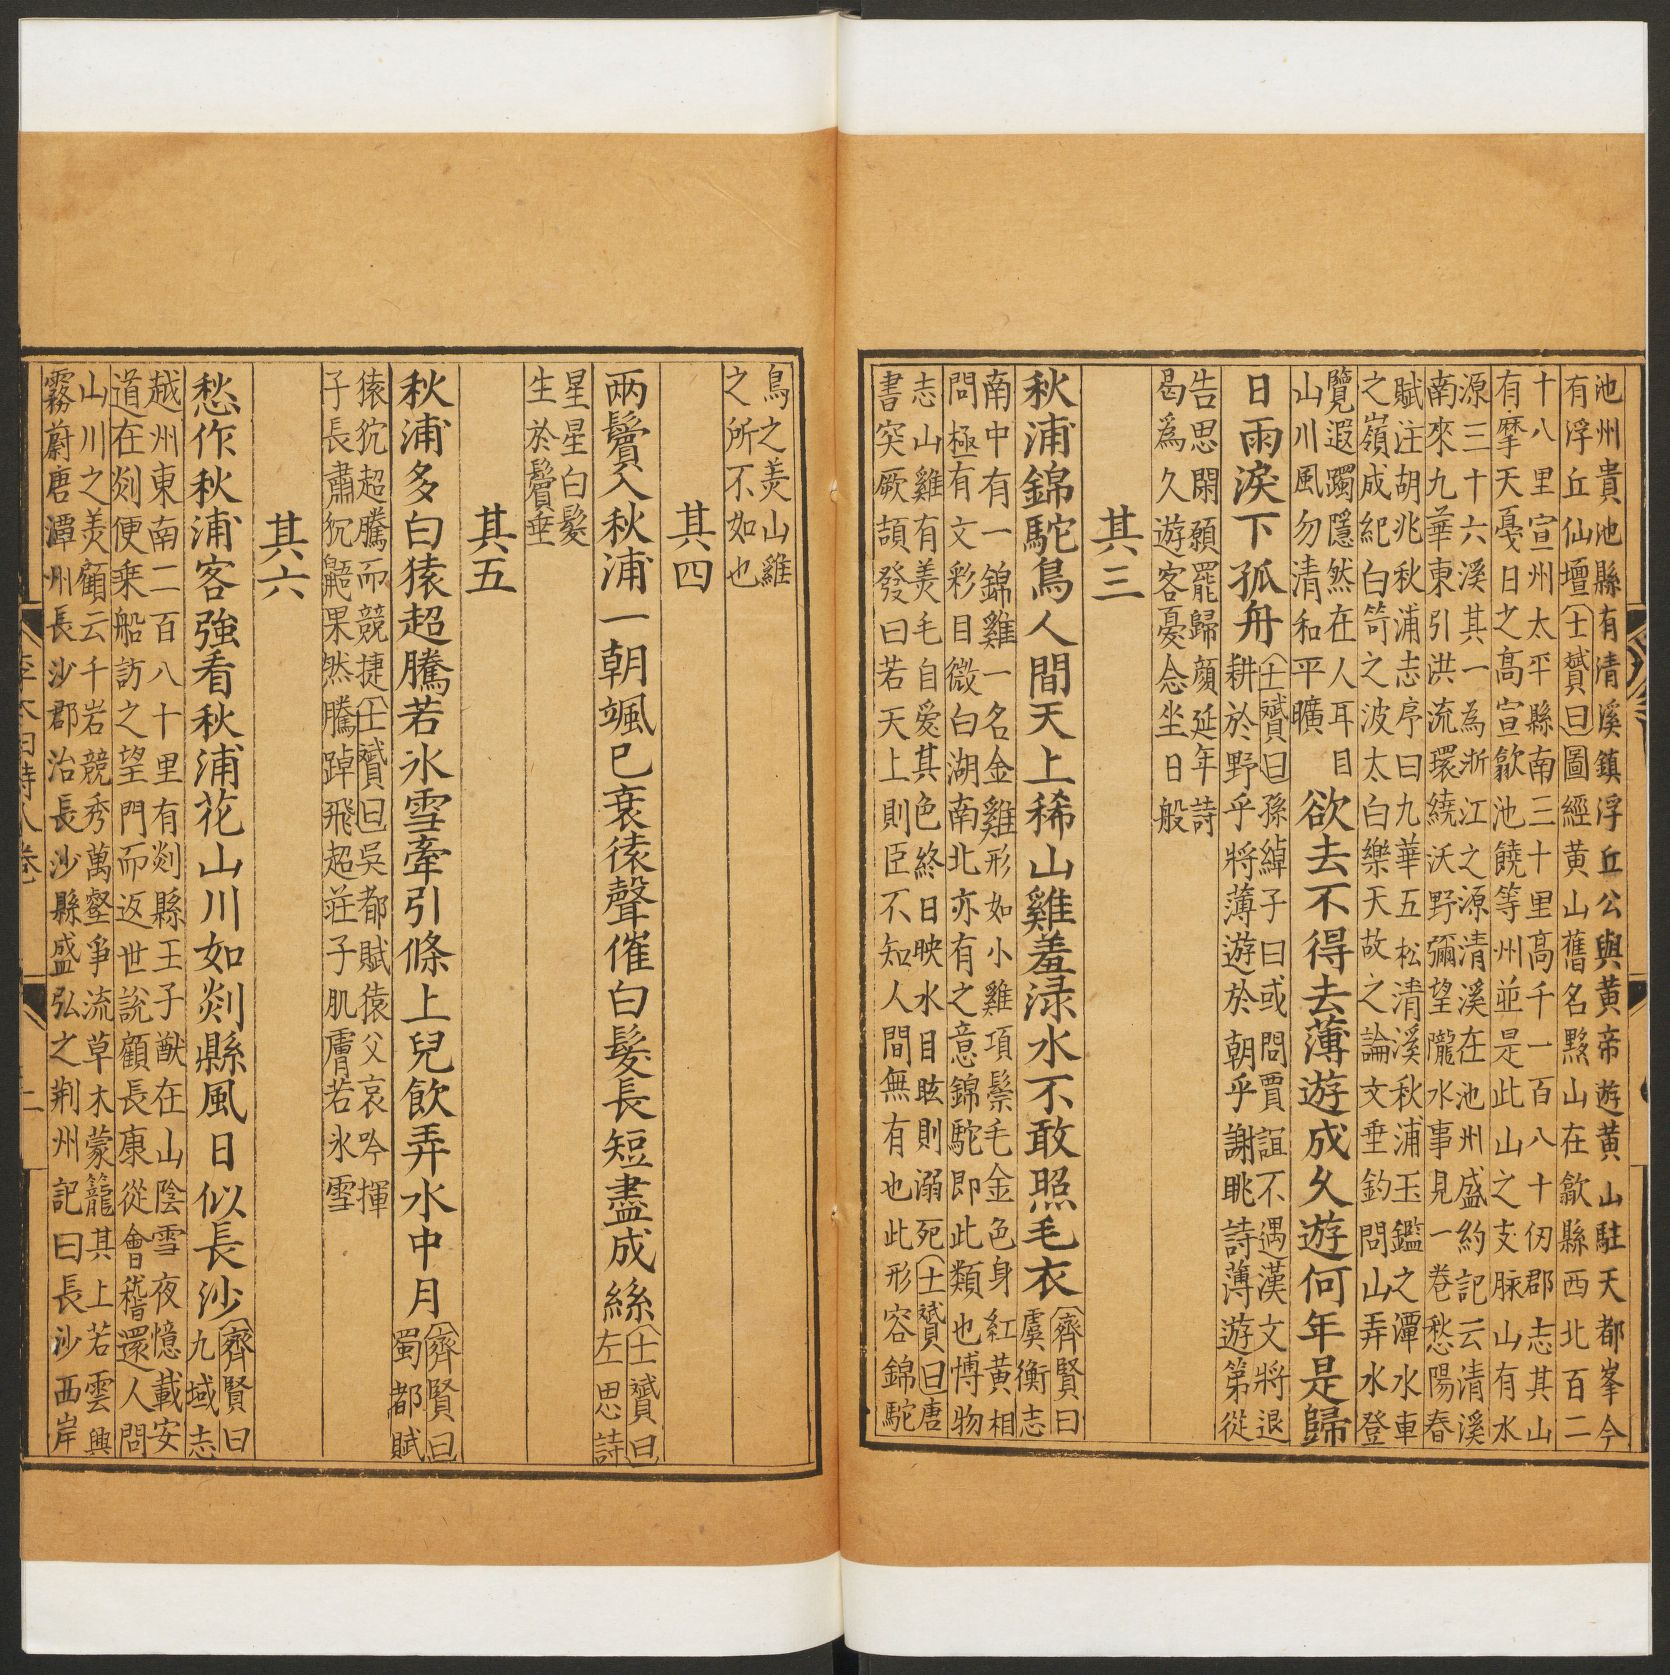 池州貴池縣有清溪鎮浮丘公與黃帝遊黃山駐天都峯今
有浮丘仙壇士贇曰圖經黃山舊名黟山在歙縣西北百二
十八里宣州太平縣南三十里高千一百八十仞郡志其山
有摩天戞日之高宣歙池饒等州並是此山之支脉山有水
源三十六溪其一為浙江之源清溪在池州盛約記云清溪
南來九華東引洪流環繞沃野彌望隴水事見一卷愁陽春
賦注胡兆秋浦志序曰九華五松清溪秋浦玉鑑之潭水車
之嶺成紀白笴之波太白樂天故之論文垂釣問山弄水登
覽遐躅隱然在人耳目
山川風勿清和平曠
欲去不得去薄遊成久遊何年是歸
日雨淚下孤舟
士贇曰孫綽子曰或問賈誼不遇漢文將退
耕於野乎將薄遊於朝乎謝眺詩薄遊第從
告思閑願罷歸顔延年詩
曷為久遊客憂念坐日般
其三
秋浦錦駝鳥人間天上稀山雞羞渌水不敢照毛衣
齊賢曰
虞衡志
南中有一錦雞一名金雞形如小雞項鬃毛金色身紅黃相
問極有文彩目微白湖南北亦有之意錦駝即此類也愽物
志山雞有美毛自愛其色終日映水目眩則溺死士贇曰唐
書突厥頡發曰若天上則臣不知人間無有也此形容錦駝
鳥之羙山雞
之所不如也
其四
兩鬢入秋浦一朝颯已衰猿聲催白髮長短盡成絲
士贇曰
左思詩
星星白髮
生於鬢垂
其五
秋浦多白猿超騰若氷雪牽引條上兒飲弄水中月
齊賢曰
蜀都賦
猿狖超騰而競捷士贇曰吳都賦猿父哀吟揮
子長肅狖鼯果然騰踔飛超莊子肌膚若氷雪
其六
愁作秋浦客強看秋浦花山川如剡縣風日似長沙
齊賢曰
九域志
越州東南二百八十里有剡縣王子猷在山陰雪夜憶載安
道在剡便乗船訪之望門而返世說顧長康從會稽還人問
山川之美顧云千岩競秀萬壑爭流草木蒙籠其上若雲興
霧蔚唐潭州長沙郡治長沙縣盛弘之荆州記曰長沙西岸
李太白詩八卷